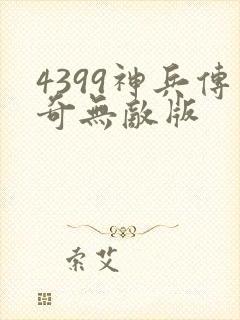 4399神兵傳
奇無敵版
索艾